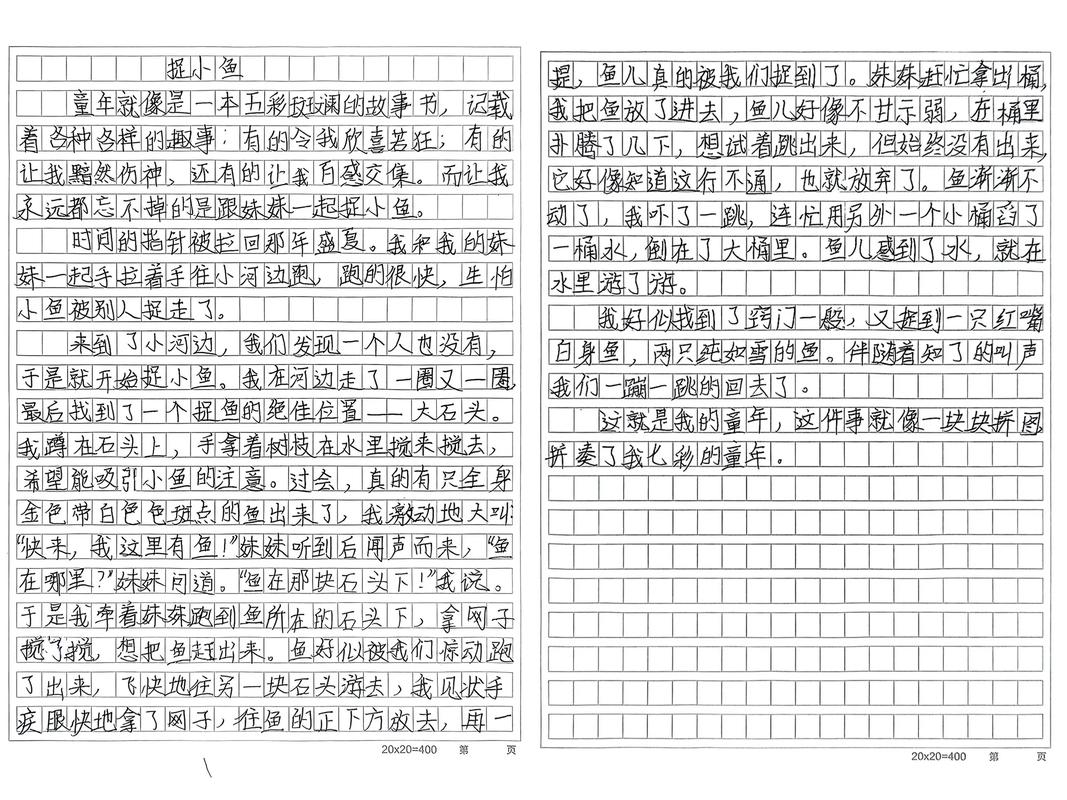 捉小鱼
童年就像是一本五彩斑斓的故事书，记载
着各种各样的趣事：有的令我欣喜若狂；有的
让我黯然伤神，还有的让我百感交集。而让我
永远都忘不掉的是跟妹妹一起捉小鱼。
时间的指针被拉回那年盛夏。我和我的妹
妹一起手拉着手往小河边跑，跑的很快，生怕
小鱼被别人捉走了。
来到了小河边，我们发现一个人也没有，
于是就开始捉小鱼。我在河边走了一圈又一圈，
最后找到了一个捉鱼的绝佳位置——大石头。
我蹲在石头上，手拿着树枝在水里搅来搅去，
希望能吸引小鱼的注意。过会，真的有只全身
金色带白色色斑点的鱼出来了，我激动地大叫：
“快来，我这里有鱼！”妹妹听到后闻声而来，“鱼
在哪里？”妹妹问道。“鱼在那块石头下！”我说。
于是我牵着妹妹跑到鱼所在的石头下，拿网子
搅了搅，想把鱼赶出来。鱼好似被我们惊动跑
了出来，飞快地往另一块石头游去，我见状手
疾眼快地拿了网子，往鱼的正下方放去，再一
20x20=400 第 页
提，鱼儿真的被我们捉到了。妹妹赶忙拿出桶，
我把鱼放了进去，鱼儿好像不甘示弱，在桶里
扑腾了几下，想试着跳出来，但始终没有出来，
它好像知道这行不通，也就放弃了。鱼渐渐不
动了，我吓了一跳，连忙用另外一个小桶舀了
一桶水，倒在了大桶里。鱼儿感到了水，就在
水里游了游。
我好似找到了窍门一般，又捉到一只红嘴
白身鱼，两只纯如雪的鱼。伴随着知了的叫声
我们一蹦一跳的回去了。
这就是我的童年，这件事就像一块块拼图
拼凑了我七彩的童年。
20x20=400 第 页